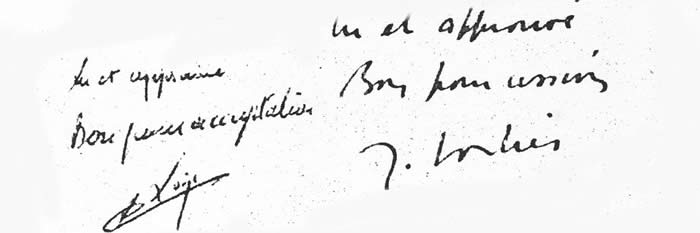 Lu et approuvé
Bon pour acceptation
lu et approuvé
Bon pour cession
J.